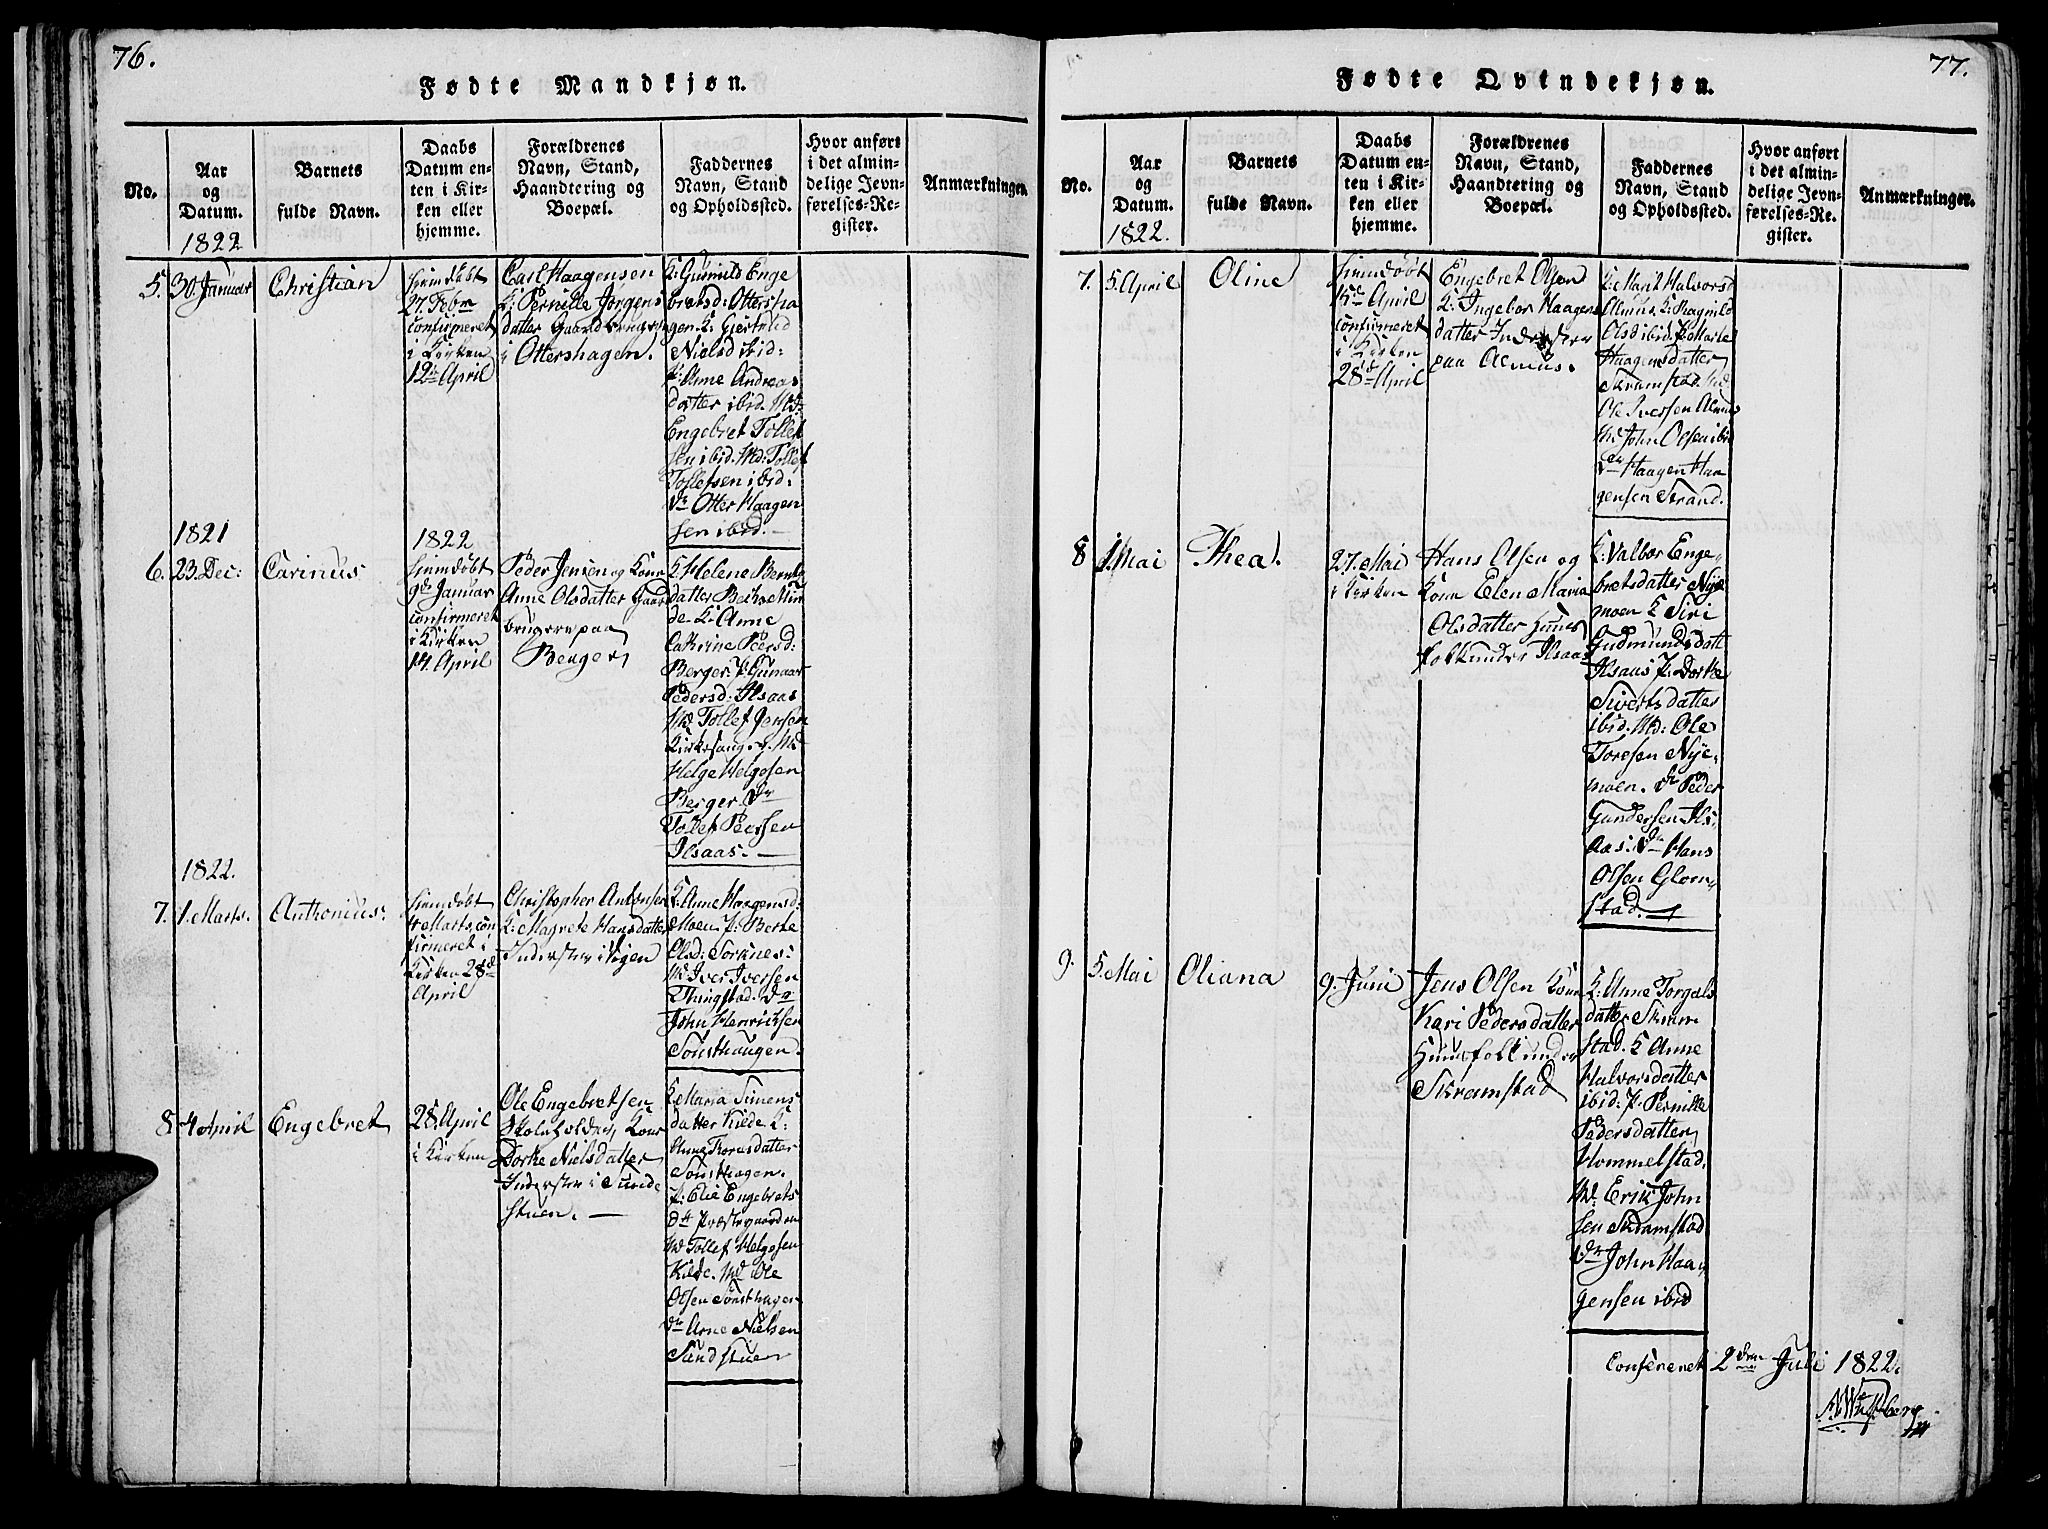 76.
Fødte Mandkjøn.
No.
Aar
og
Datum.
Barnets
fulde Navn.
Daabs
Datum en-
ten i Kir-
ken eller
hjemme.
Forældrenes
Navn, Stand,
Haandtering og
Boepæl.
Faddernes
Navn, Stand
og Opholdssted.
Hvor anført
i det almin-
delige Jevn-
førelses-Re-
gister.
Anmærkninger.
1822
5. 30. Januar
Christian
hiemdøbt
27. Febr
confirmeret
i Kirken
12te April
Carl Haagensen
K: Pernille Jørgens
datter Gaardbrugere
i Ottershagen.
K: Gunnild Enge
bretsd: Ottersha
gen K: Giertrud
Nielsd ibid:
P: Anne Andreas
datter ibid. Md:
Engebret Tollef
sen ibid. Md: Tollef
Tollefsen ibid:
Dr Otter Haagen
sen ibid. —
1821
6. 23. Dec:
Carinus
1822
hiemdøbt
9de Januar
confirmeret
i Kirken
14. April
Peder Jensen og Kone
Anne Olsdatter Gaard
brugere paa
Berger
K. Helene Bernts
datter
de. K. Anne
Cathrine Peersd:
Berger: P: Gunnar
Pedersd: Ilsaas
Md Tollef Jensen
Kirkesanger. Md
Helge Helgesen
Berger. Dr
Tollef Peersen
Ilsaas. —
1822.
7. 1. Marts.
Anthonius:
hiemdøbt
Marts, con
firmeret i
Kirken 28de
April
Christopher Antonsen
K: Magrete Hansdatter
Inderster i Vigen
K. Anne Haagensd:
Moen, P: Berte
Olsd: Sorknes:
Md Iver Iversen
Thingstad. Dr
John Henrichsen
Sonsthaugen.
8. 4 April
Engebret
28 April
i Kirken
Ole Engebretsen
Skoleholder, Kone
Dorthe Nielsdatter
Inderster i Sunde
stuen. —
K. Maria Simens
datter Kilde K:
Anne Thorusdatter
Sonsthagen.
P: Elie Engebrets
dtr Præstegaarden
Md Tollef Helgesen
Kilde. Md Ole
Olsen Sønsthagen
Dr Arne Nielsen
Sundstuen
77.
Fødte Qvindekjøn.
No.
Aar
og
Datum.
Barnets
fulde Navn.
Daabs
Datum en-
ten i Kir-
ken eller
hjemme.
Forældrenes
Navn, Stand,
Haandtering og
Boepæl.
Faddernes
Navn, Stand
og Opholdssted.
Hvor anført
i det almin-
delige Jevn-
førelses-Re-
gister.
Anmærkninger.
1822.
7. 5. April
Oline
hiemdøbt
15de April
confirmeret
i Kirken
28de April
Engebret Olsen
K: Ingebor Haagens
datter Inderster
paa Almus.
K: Marit Halvorsd
Almus. K: Ragnild
Olsd ibid. P. Marte
Haagensdatter
Skramstad. Md
Ole Iversen Almus
Md John Olsen ibid
Dr Haagen Haa
gensen Strand.
8 1. Mai
Thea.
27. Mai
i Kirken
Hans Olsen og
Kone Elen Maria
Olsdatter Huus
folk under Ilsaas
K: Valbor Enge-
bretsdatter Nye
moen K Siri
Gudmundsdatt
Ilsaas P. Dorthe
Sivertsdatter
ibid. Md: Ole
Toresen Nye-
moen. Dr Peder
Gundersen Ils-
aas. Dr Hans
Olsen Glom-
stad. —
9. 5. Mai
Oliana
9. Juni
Jens Olsen Kone
Kari Pedersdatter
Huusfolk under
Skramstad
K: Anne Torgals
datter Skram
stad. K Anne
Halvorsdatter
ibid: P. Pernille
Pedersdatter
Hommelstad.
Md. Erik John
sen Skramstad
Dr John Haa
gensen ibid
Confereret 2den Juli 1822.